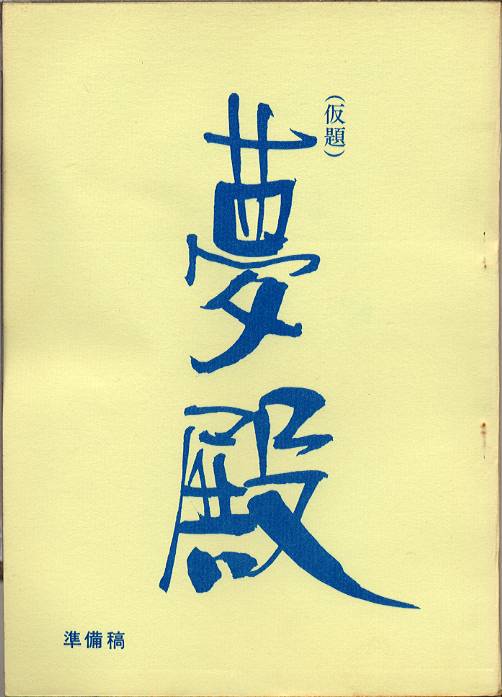 (仮題)
夢殿
準備稿